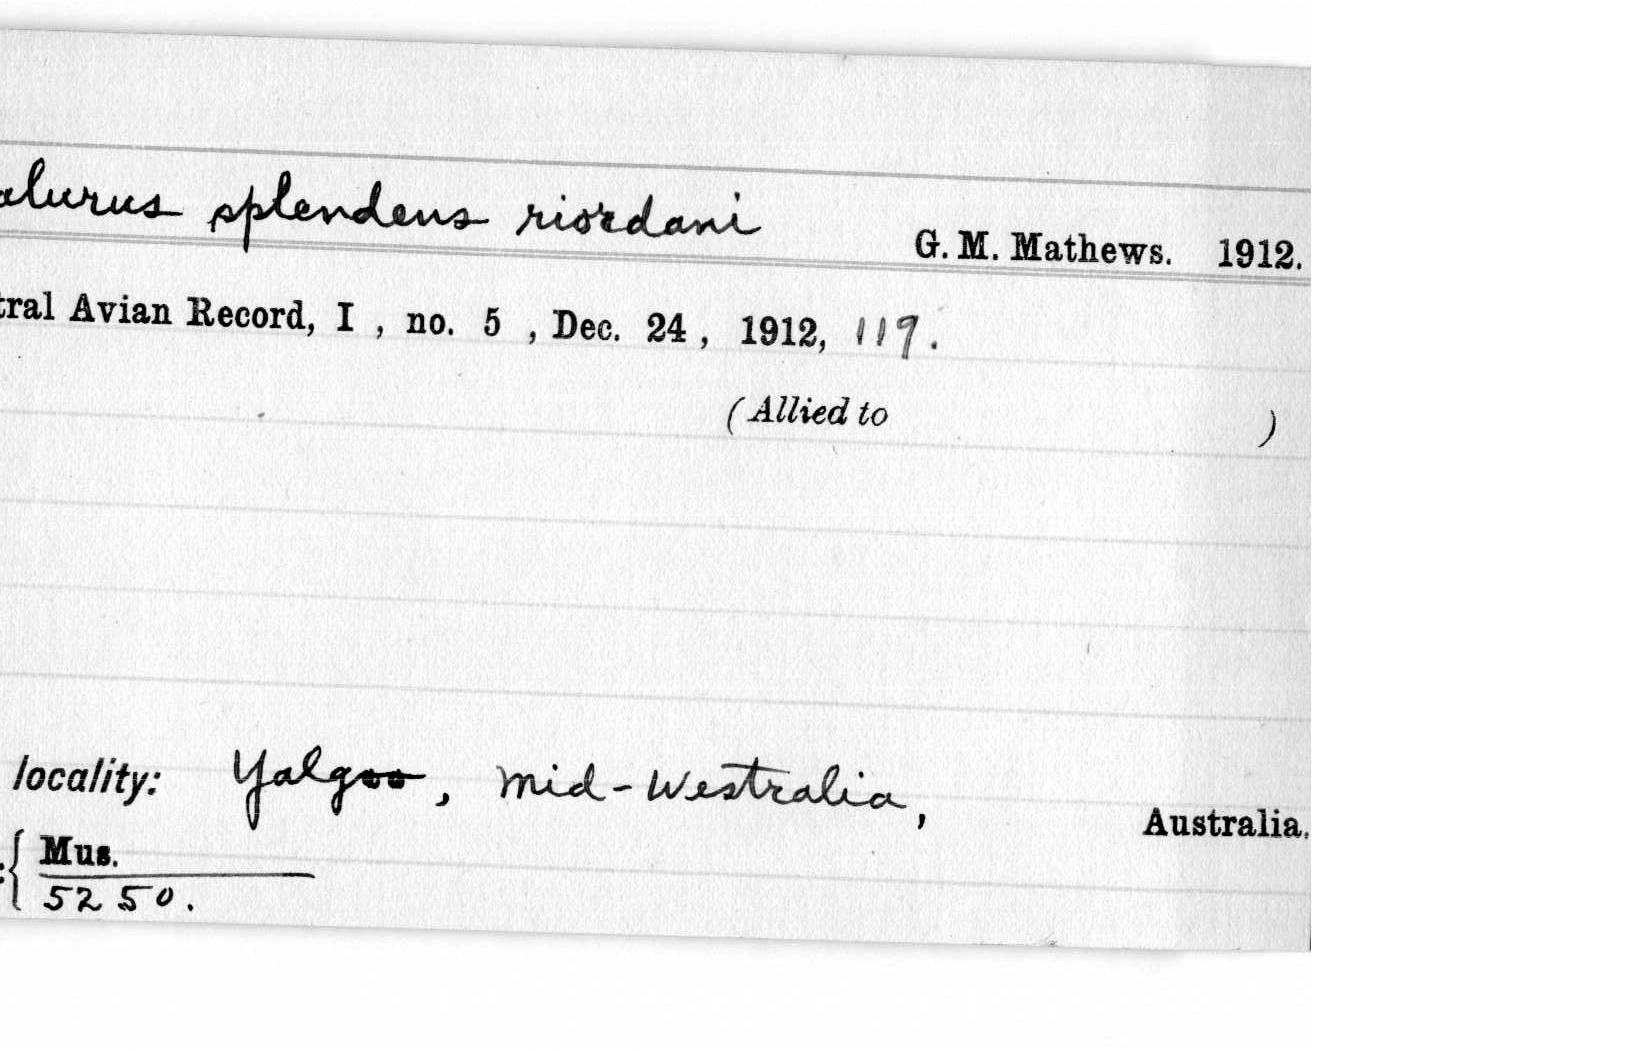 alurus splendens riordani G. M. Mathews. 1912.
tral Avian Record, I , no. 5 , Dec. 24 , 1912, 117.
(Allied to )
locality: Yalgoo, Mid-Westralia, Australia.
:{ Mus.
5250.